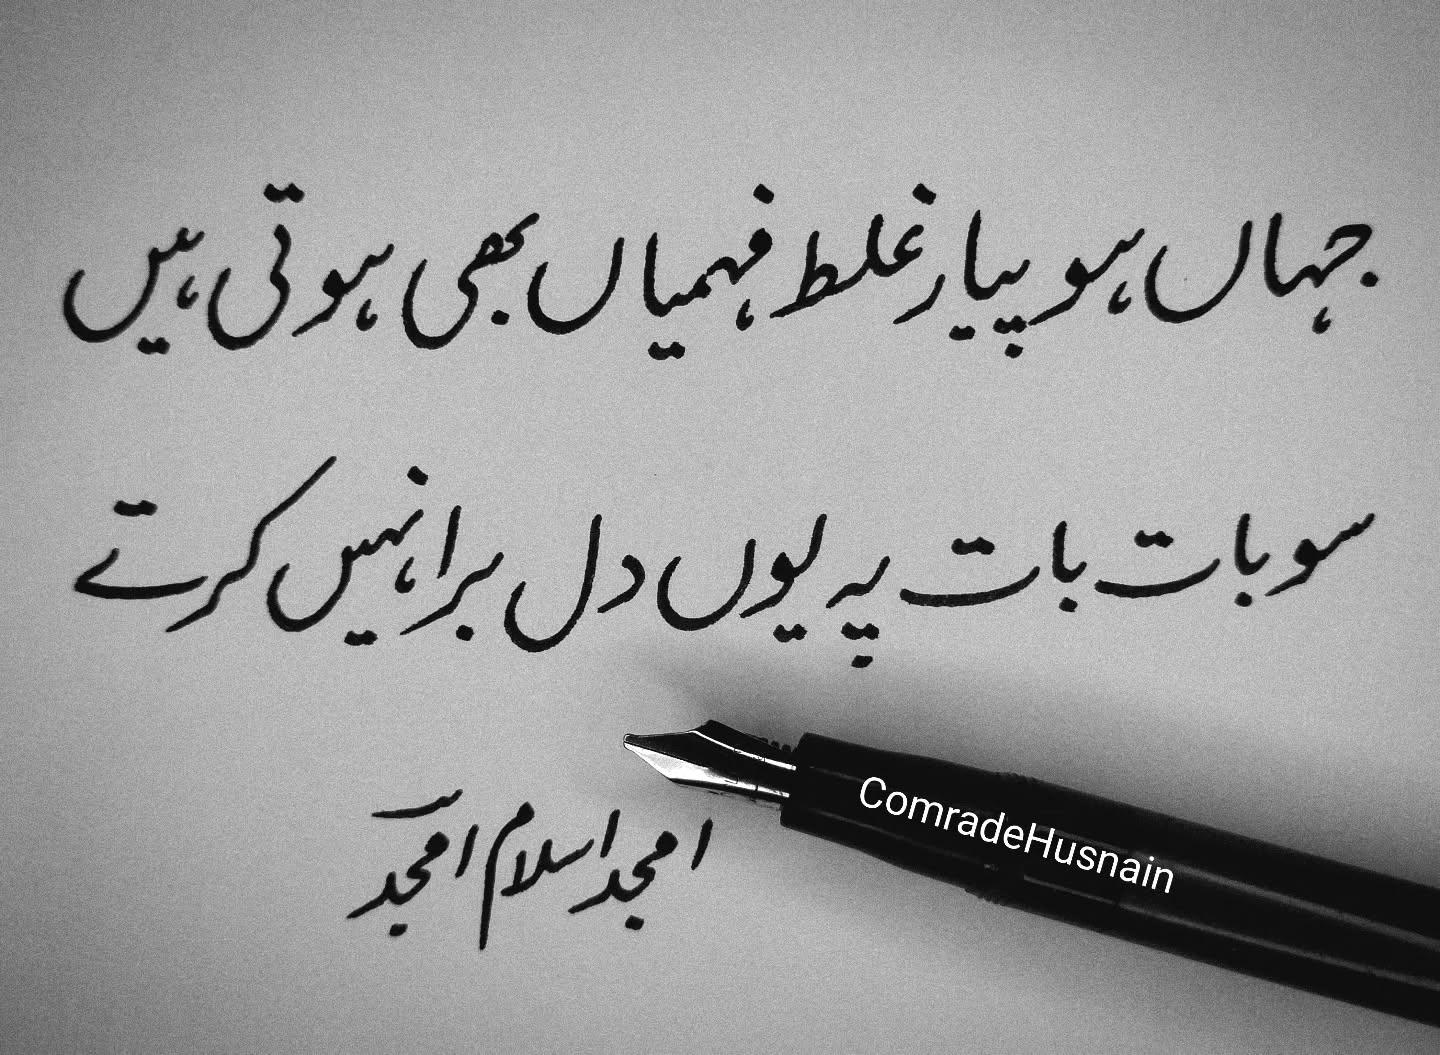 جہاں ہو پیار غلط فہمیاں بھی ہوتی ہیں
سو بات بات پہ یوں دل برا نہیں کرتے
امجد اسلام امجد
ComradeHusnain